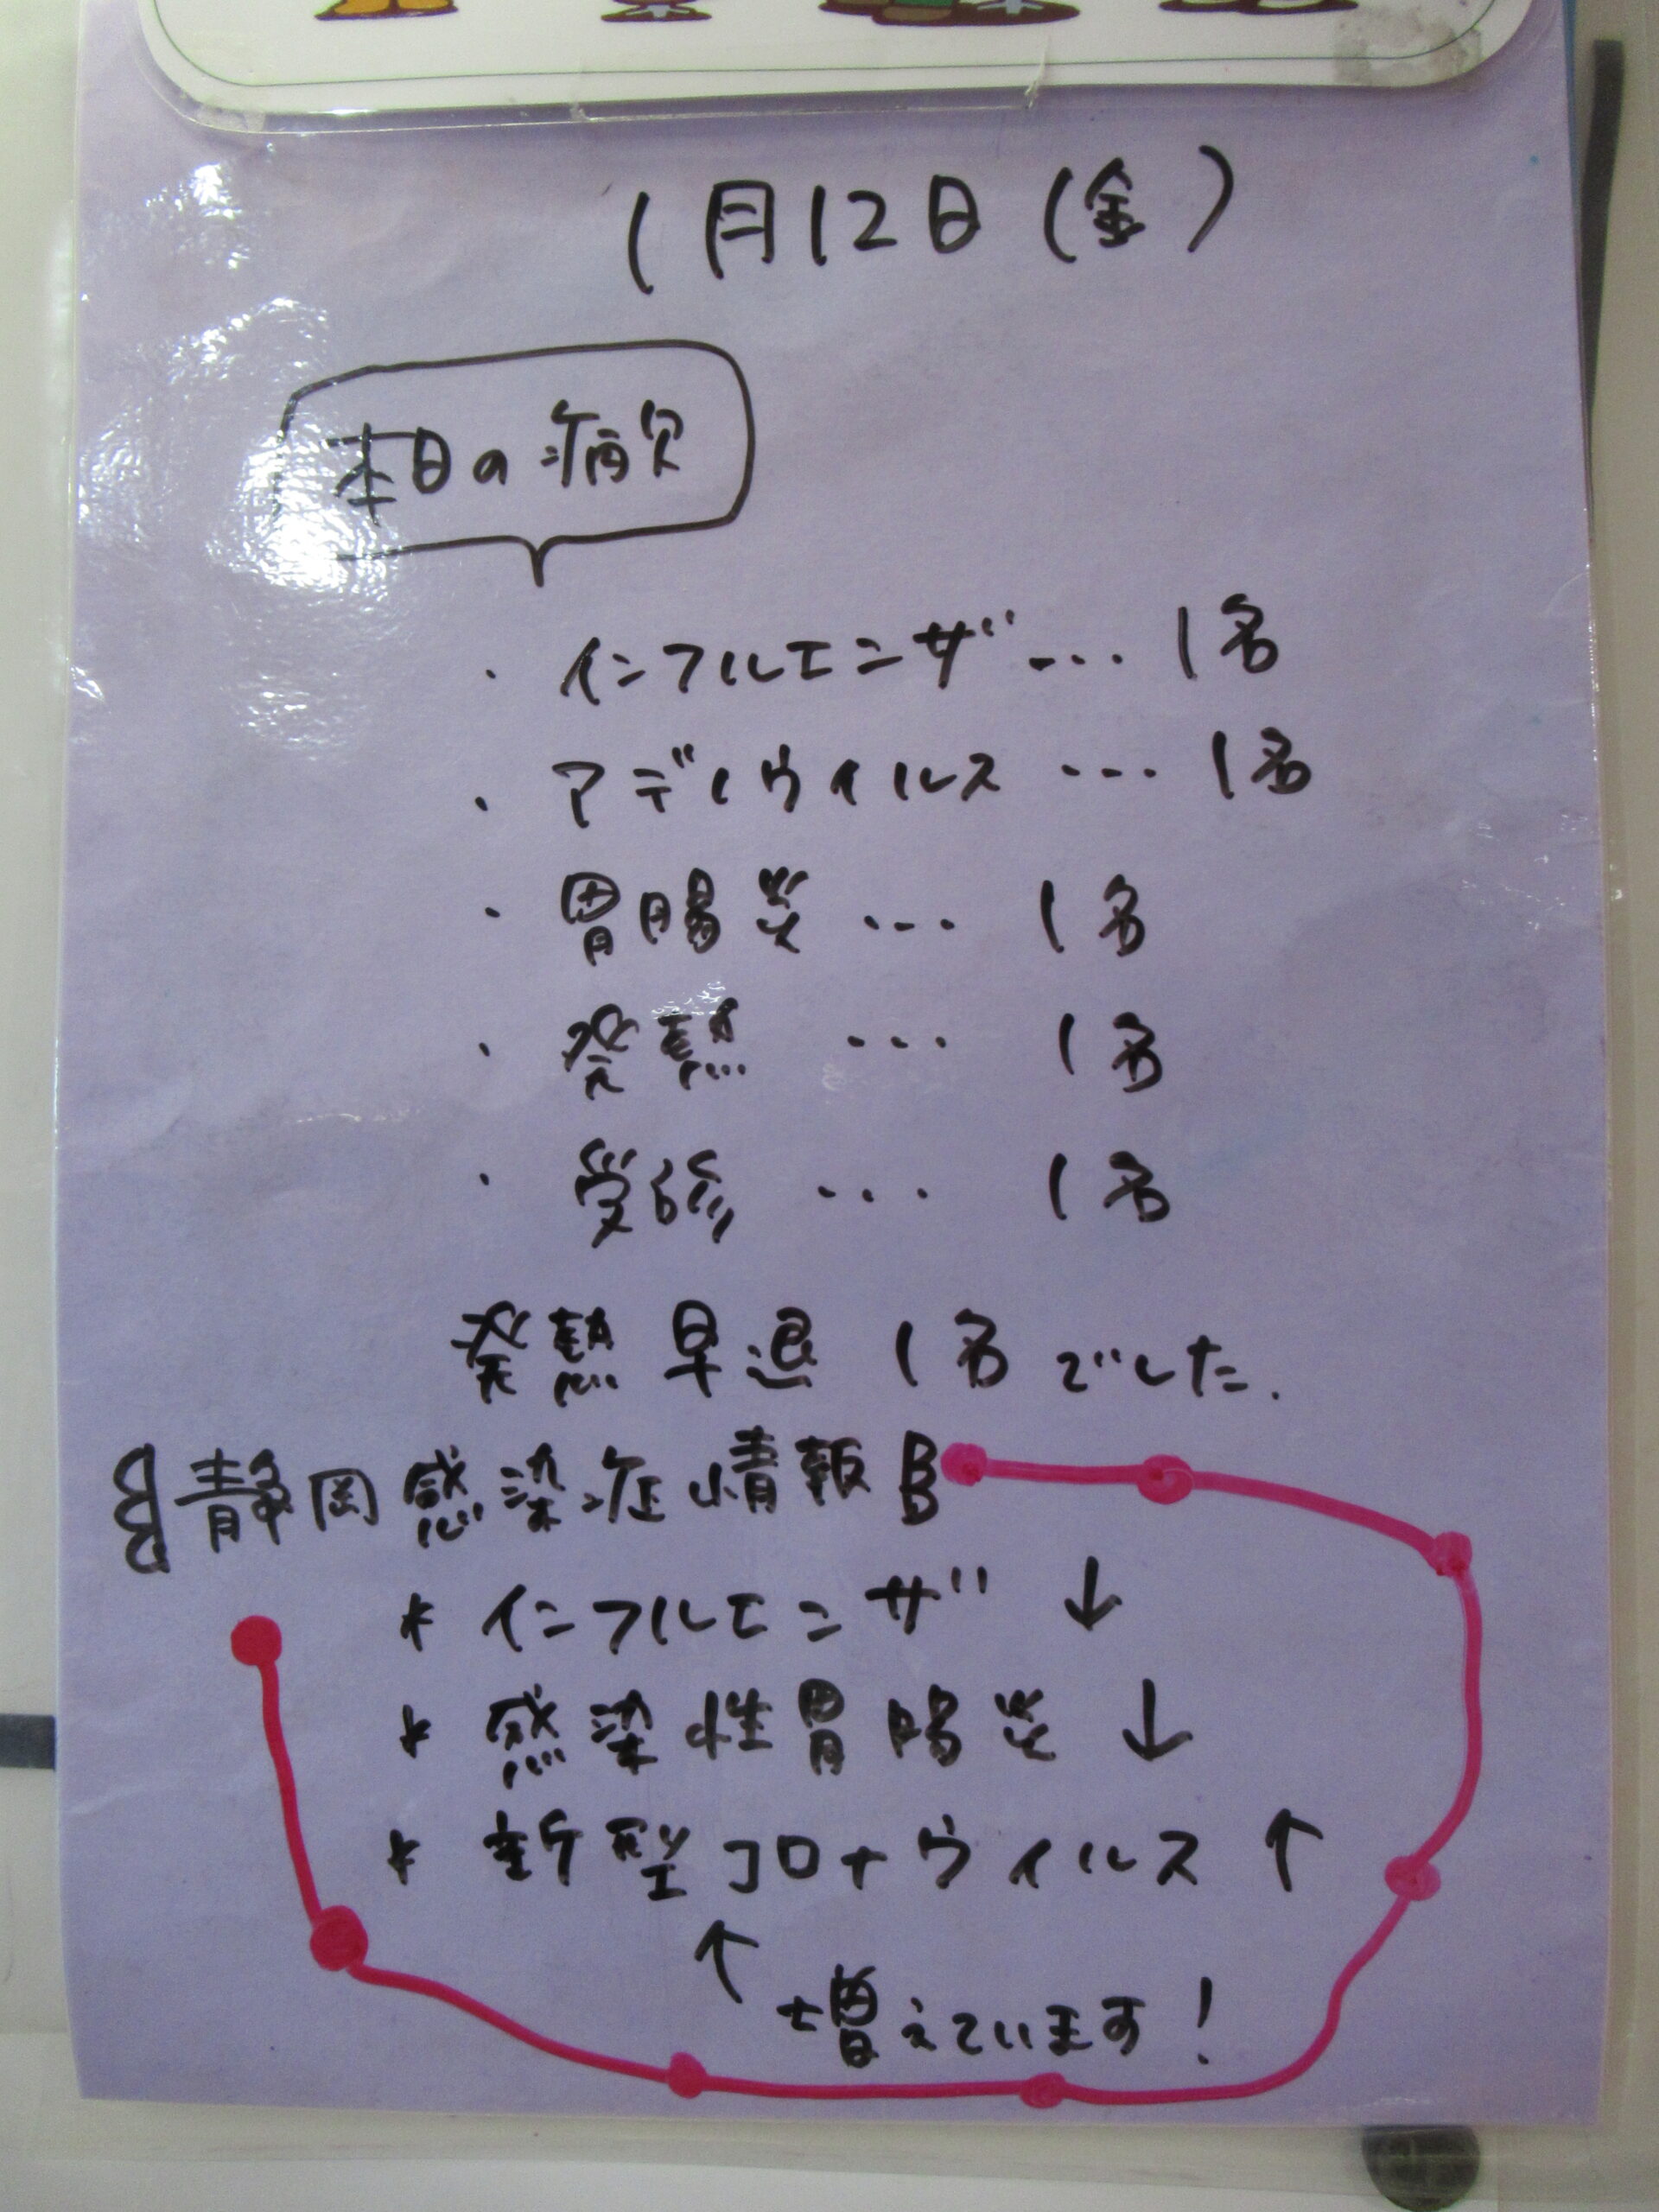 1月12日(金)
本日の病欠
・インフルエンザ… 1名
・アデノウイルス… 1名
・胃腸炎… 1名
・発熱… 1名
・受診… 1名
発熱早退 1名でした.
静岡感染症情報
* インフルエンザ ↓
* 感染性胃腸炎 ↓
* 新型コロナウイルス ↑
↑ 増えています!